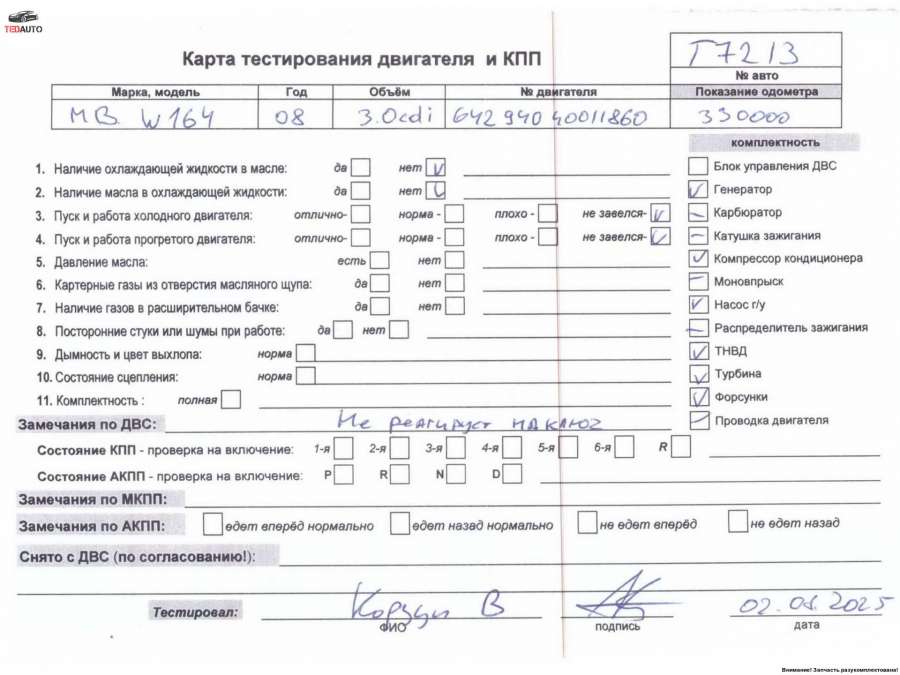 TEDAUTO
Карта тестирования двигателя и КПП
Т7213
№ авто
Марка, модель Год Объём № двигателя Показание одометра
MB W164 08 3.0cdi 642 940 40011860 330000
комплектность
1. Наличие охлаждающей жидкости в масле: да нет
Блок управления ДВС
2. Наличие масла в охлаждающей жидкости: да нет
Генератор
3. Пуск и работа холодного двигателя: отлично- норма - плохо - не завелся-
Карбюратор
4. Пуск и работа прогретого двигателя: отлично- норма - плохо - не завелся-
Катушка зажигания
5. Давление масла: есть нет
Компрессор кондиционера
6. Картерные газы из отверстия масляного щупа: да нет
Моновпрыск
7. Наличие газов в расширительном бачке: да нет
Насос г/у
8. Посторонние стуки или шумы при работе: да нет
Распределитель зажигания
9. Дымность и цвет выхлопа: норма
ТНВД
10. Состояние сцепления: норма
Турбина
11. Комплектность : полная
Форсунки
Замечания по ДВС: Не реагирует на ключ
Проводка двигателя
Состояние КПП - проверка на включение: 1-я 2-я 3-я 4-я 5-я 6-я R
Состояние АКПП - проверка на включение: P R N D
Замечания по МКПП:
Замечания по АКПП: едет вперёд нормально едет назад нормально не едет вперёд не едет назад
Снято с ДВС (по согласованию!):
Тестировал: В 2025
ФИО подпись дата
Внимание! Запчасть разукомплектована!